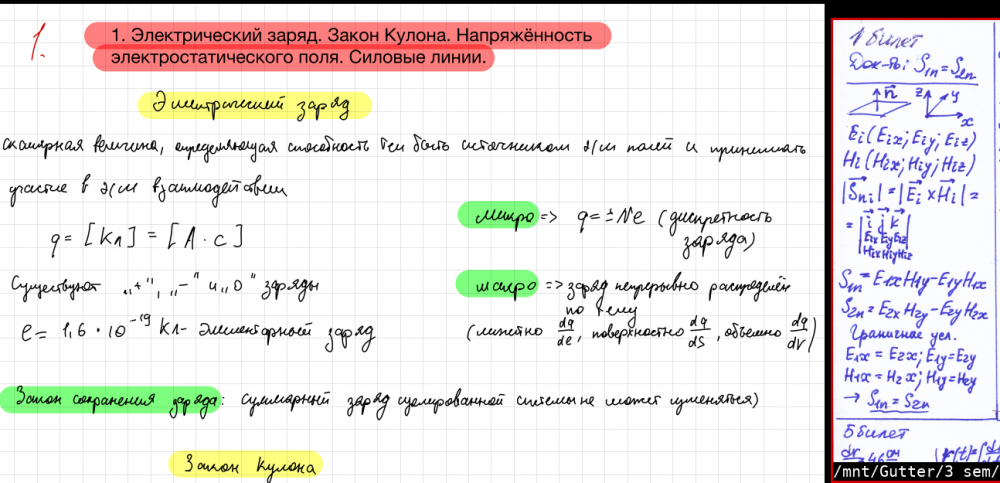 1.
1. Электрический заряд. Закон Кулона. Напряжённость
электростатического поля. Силовые линии.
Электрический заряд
скалярная величина, определяющая способность тел быть источником э/м полей и принимать
участие в э/м взаимодействии
q = [Кл] = [А · с]
Существуют „+", „−" и „0" заряды
e = 1,6 · 10⁻¹⁹ Кл - элементарный заряд
микро => q = ± Ne (дискретность
заряда)
макро => заряд непрерывно распределён
по телу
(линейно dq/dl, поверхностно dq/dS, объемно dq/dV)
Закон сохранения заряда: суммарный заряд изолированной системы не может изменяться)
Закон Кулона
1 билет
Док-ть: S₁ₙ = S₂ₙ
n z y x
Ei (Eix; Eiy; Eiz)
Hi (Hix; Hiy; Hiz)
|Sni| = |Ei × Hi| =
= | i j k
Eix Eiy Eiz
Hix Hiy Hiz |
S₁ₙ = E₁xH₁y − E₁yH₁x
S₂ₙ = E₂xH₂y − E₂yH₂x
Граничные усл.
E₁x = E₂x; E₁y = E₂y
H₁x = H₂x; H₁y = H₂y
→ S₁ₙ = S₂ₙ
5 билет
/mnt/Gutter/3 sem/